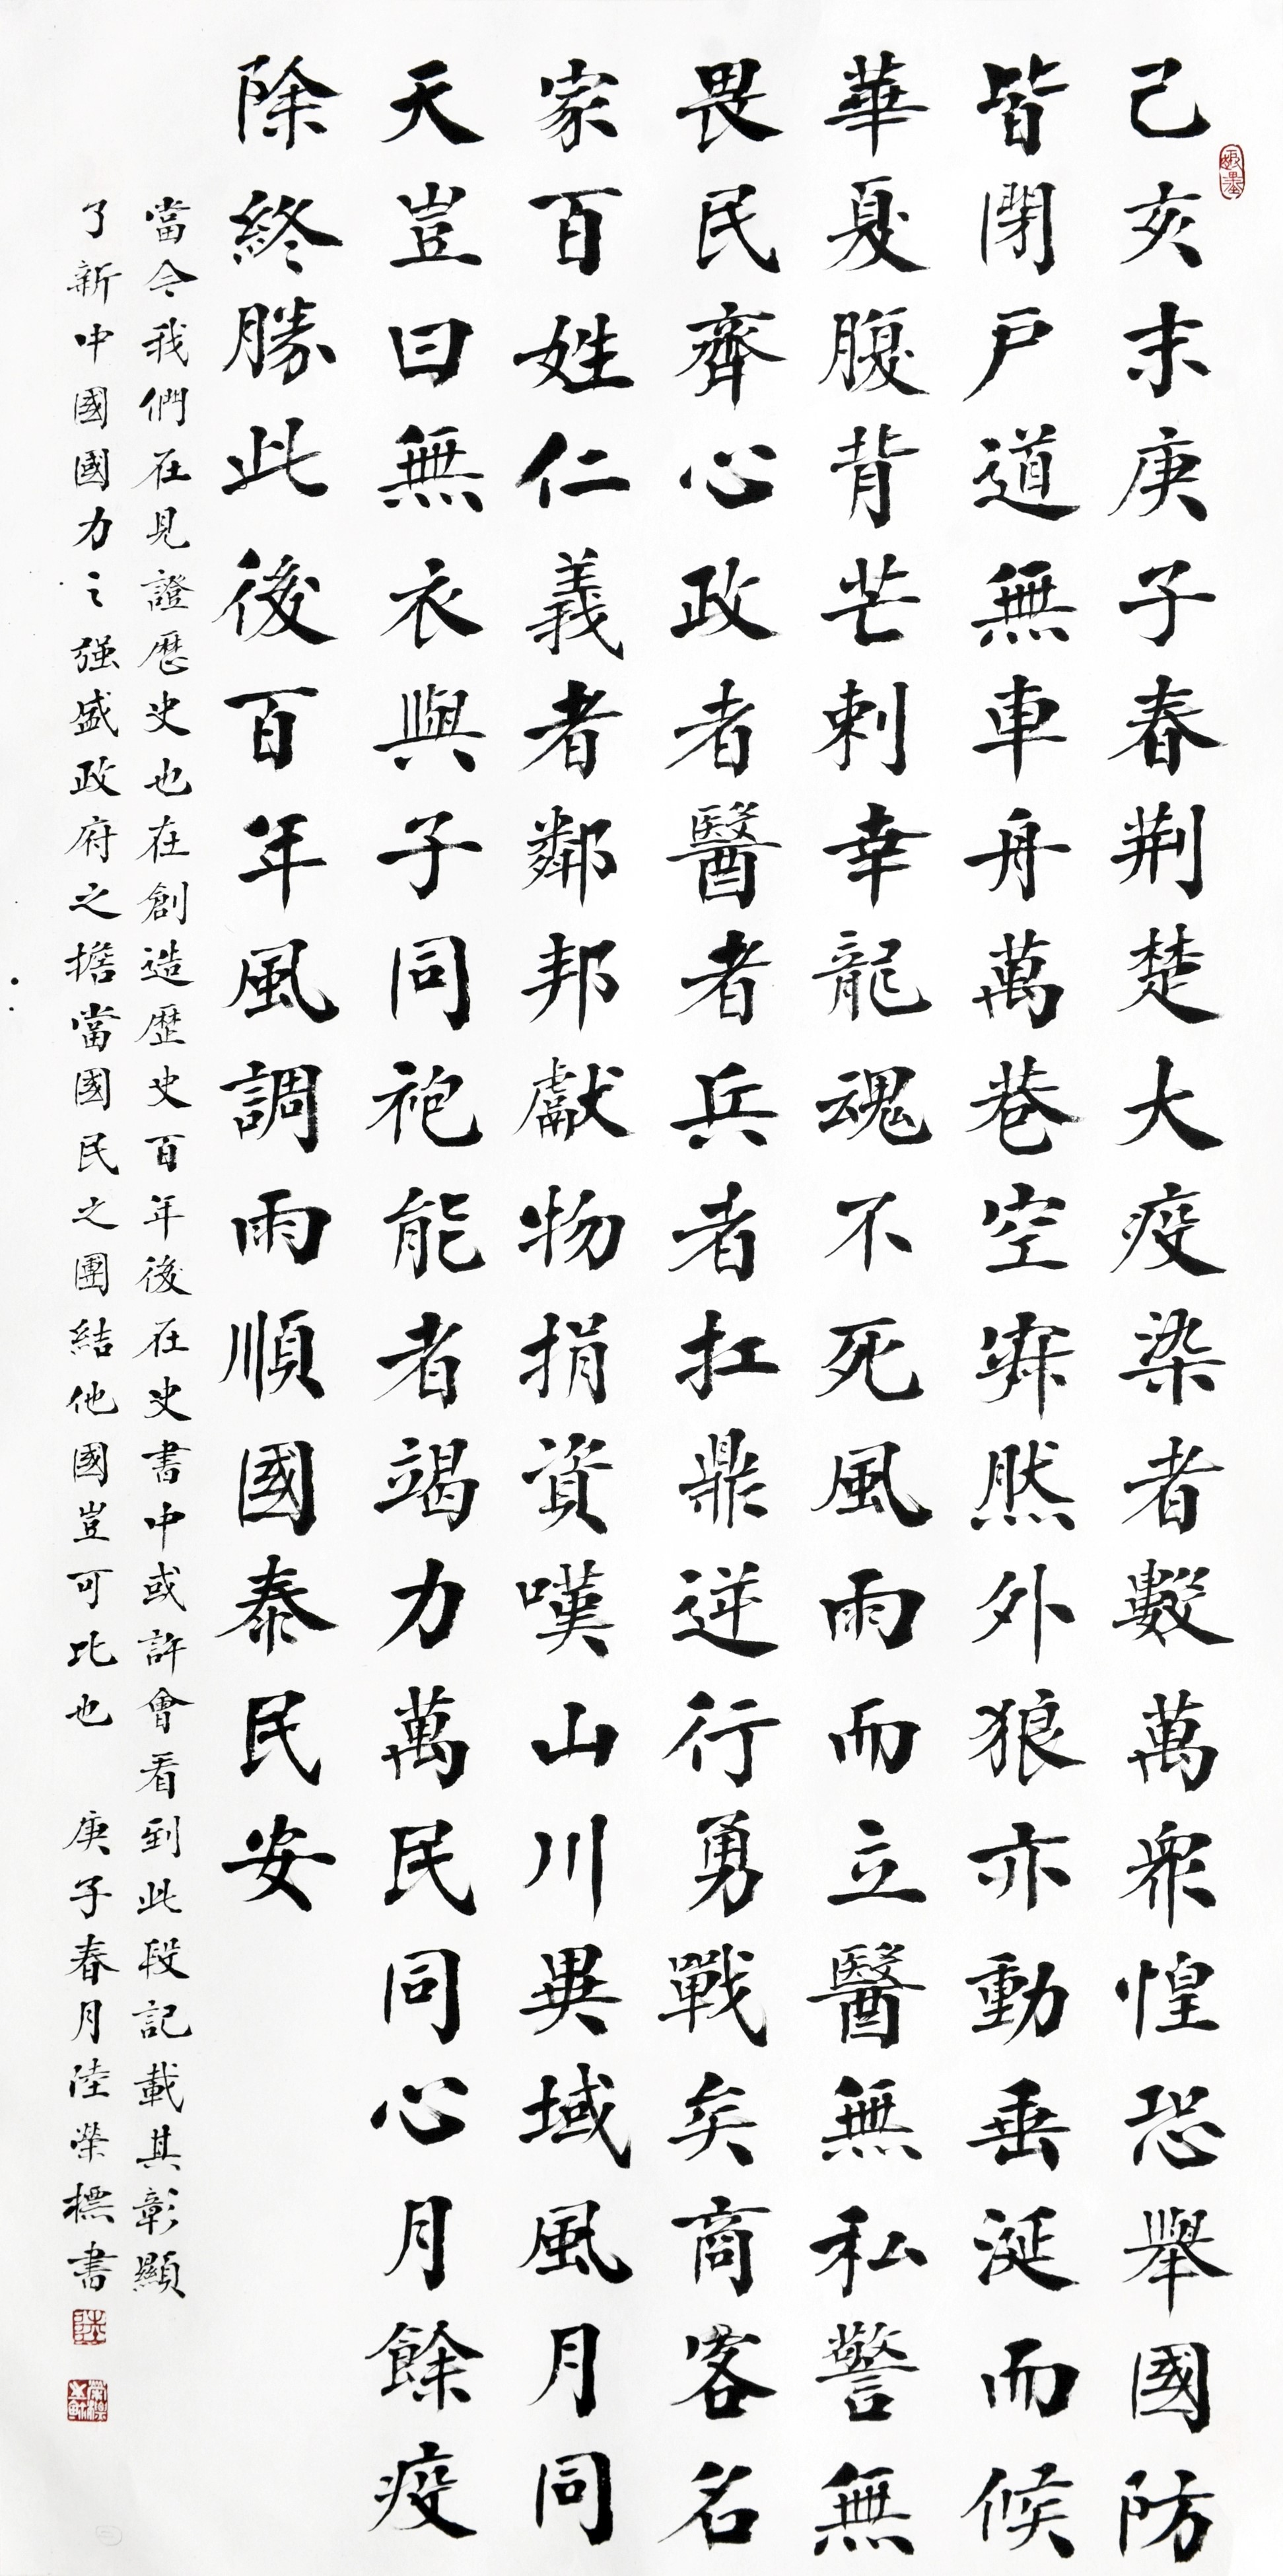 己亥末庚子春荆楚大疫染者數萬衆惶恐舉國防
皆閉戸道無車舟萬巷空寂然外狼亦動垂涎而候
華夏腹背芒刺幸龍魂不死風雨而立醫無私警無
畏民齊心政者醫者兵者扛鼎逆行勇戰矣商客名
家百姓仁義者鄰邦獻物捐資嘆山川異域風月同
天豈曰無衣與子同袍能者竭力萬民同心月餘疫
除終勝此後百年風調雨順國泰民安
當今我們在見證歷史也在創造歷史百年後在史書中或許會看到此段記載其彰顯
了新中國國力之强盛政府之擔當國民之團結他國豈可比也 庚子春月陸榮標書